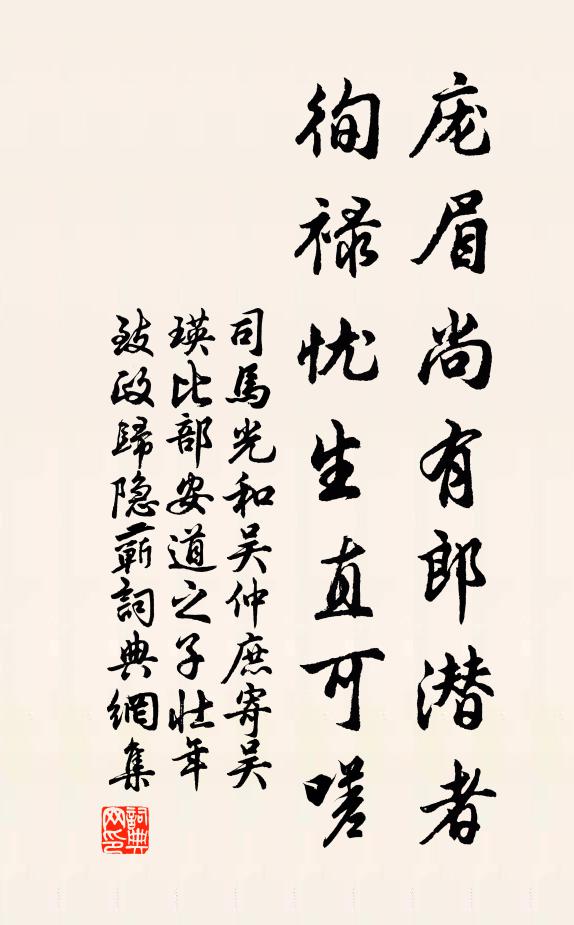 庞眉尚有郎潜者
徇禄忧生直可嗟
司馬光和吴仲庶寄吴
瑛比部安道之子壮年
致政歸隐蕲詞典網集
詞典网印